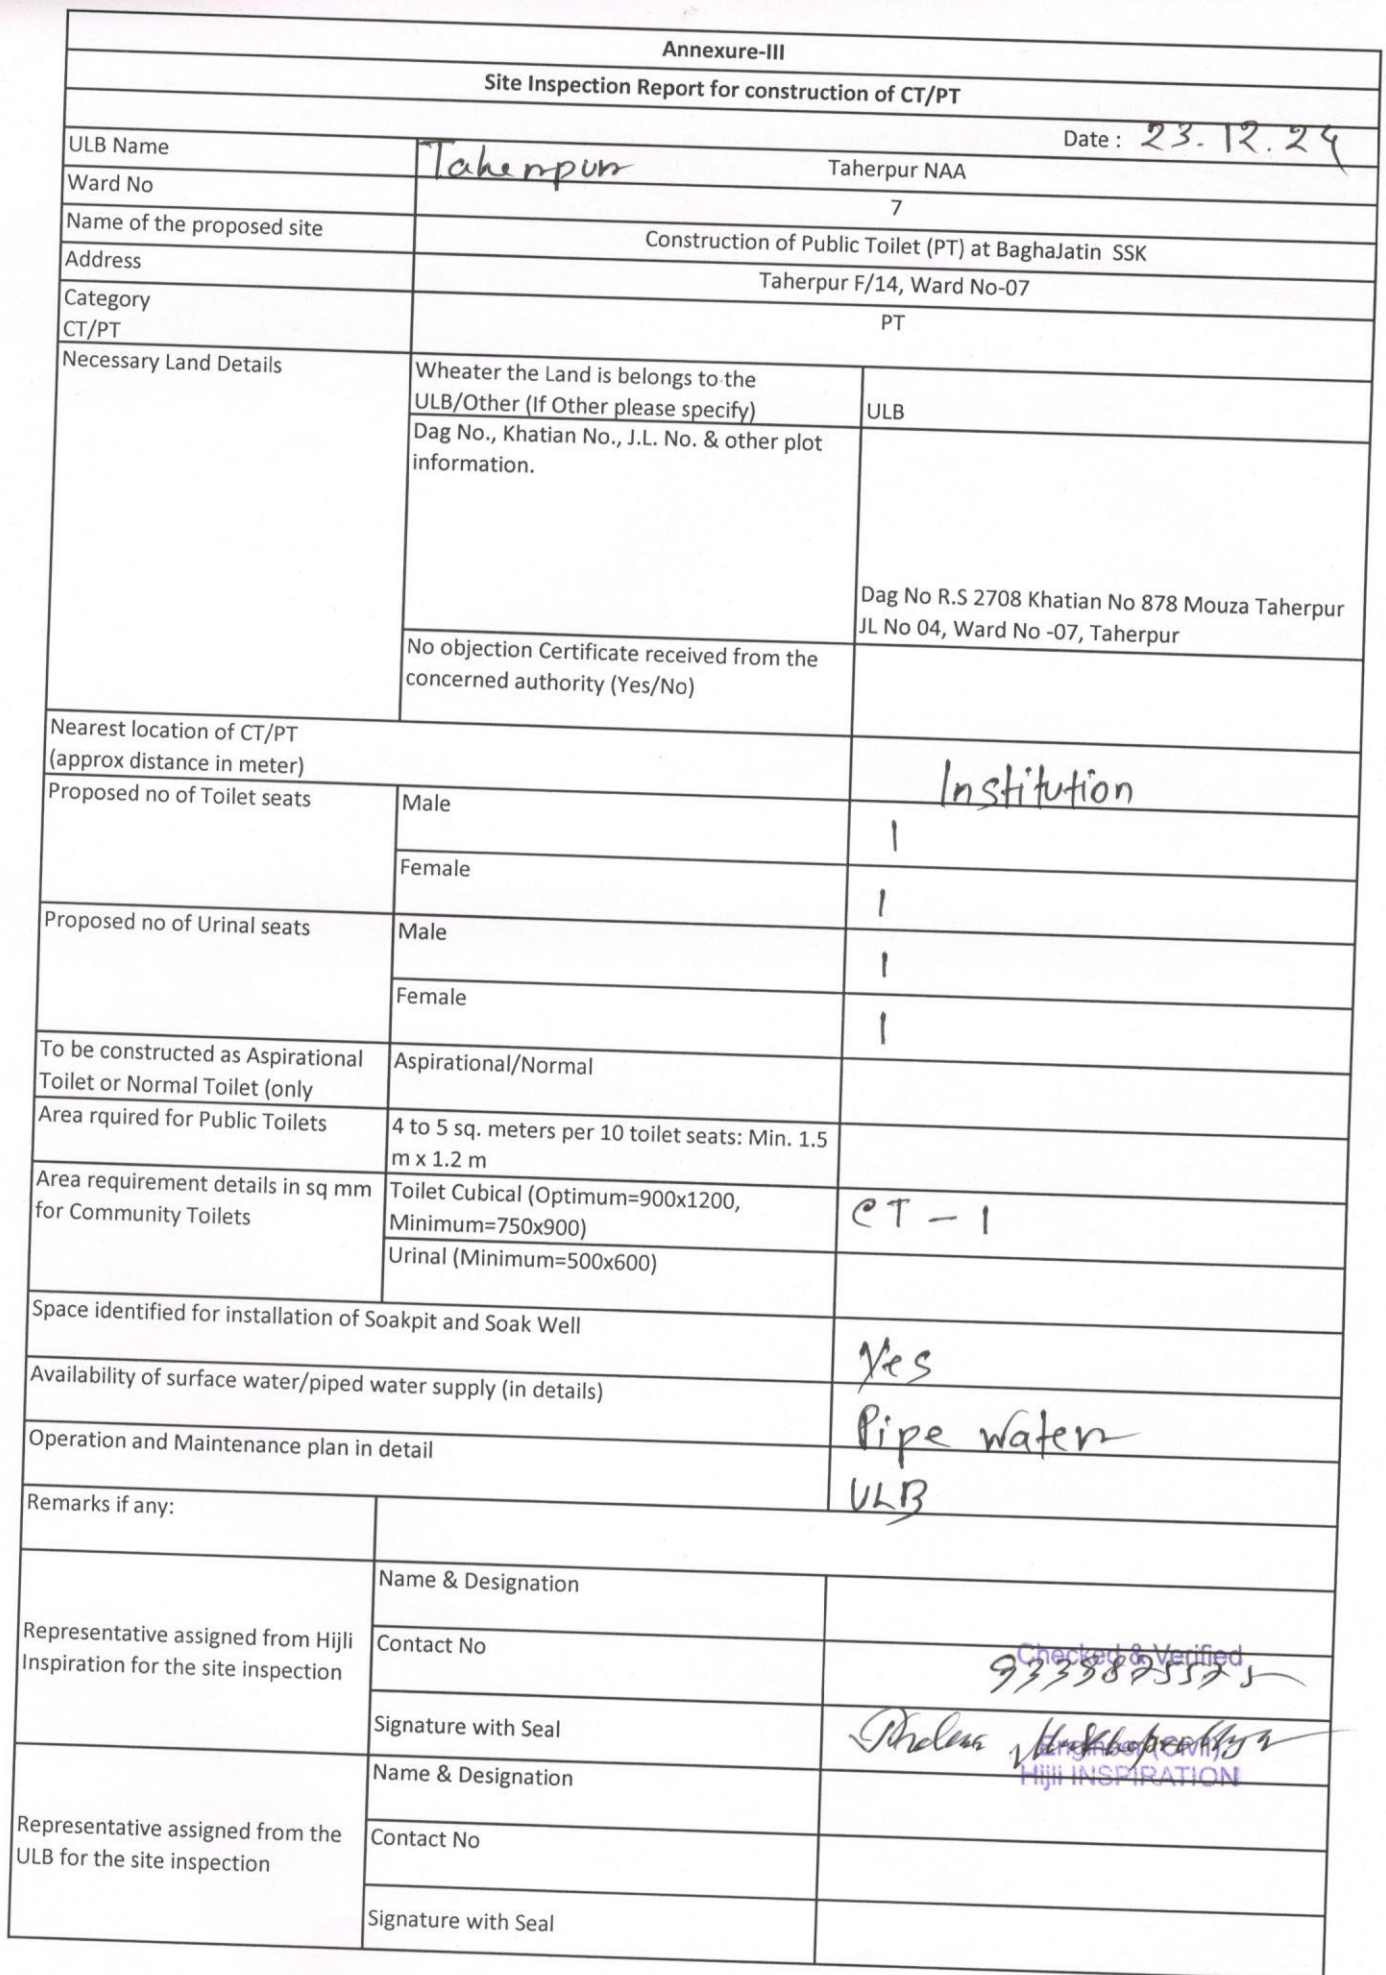 Annexure-III
Site Inspection Report for construction of CT/PT
Date : 23.12.24
ULB Name Taherpur Taherpur NAA
Ward No 7
Name of the proposed site Construction of Public Toilet (PT) at BaghaJatin SSK
Address Taherpur F/14, Ward No-07
Category
CT/PT PT
Necessary Land Details Wheater the Land is belongs to the
ULB/Other (If Other please specify) ULB
Dag No., Khatian No., J.L. No. & other plot
information.
Dag No R.S 2708 Khatian No 878 Mouza Taherpur
JL No 04, Ward No -07, Taherpur
No objection Certificate received from the
concerned authority (Yes/No)
Nearest location of CT/PT
(approx distance in meter) Institution
Proposed no of Toilet seats Male 1
Female 1
Proposed no of Urinal seats Male 1
Female 1
To be constructed as Aspirational Aspirational/Normal
Toilet or Normal Toilet (only
Area rquired for Public Toilets 4 to 5 sq. meters per 10 toilet seats: Min. 1.5
m x 1.2 m
Area requirement details in sq mm Toilet Cubical (Optimum=900x1200,
for Community Toilets Minimum=750x900) CT - 1
Urinal (Minimum=500x600)
Space identified for installation of Soakpit and Soak Well Yes
Availability of surface water/piped water supply (in details) Pipe Water
Operation and Maintenance plan in detail ULB
Remarks if any:
Name & Designation
Representative assigned from Hijli Contact No
Inspiration for the site inspection
Checked & Verified
Signature with Seal
Engineer (Civil)
Hijli INSPIRATION
Name & Designation
Representative assigned from the Contact No
ULB for the site inspection
Signature with Seal